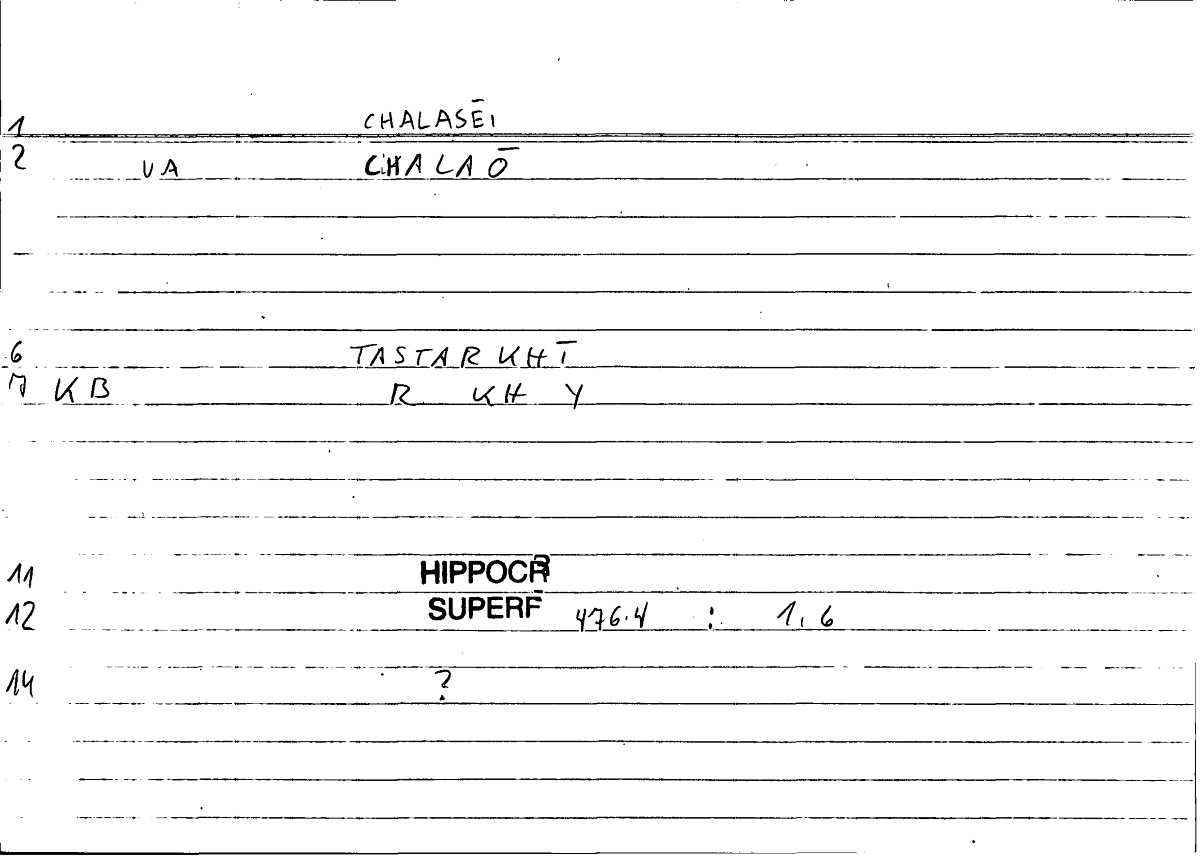 1 CHALASĒI
2 VA CHALAŌ
6 TASTARKHĪ
7 KB R KH Y
11 HIPPOCR
12 SUPERF 476.4 : 1,6
14 ?